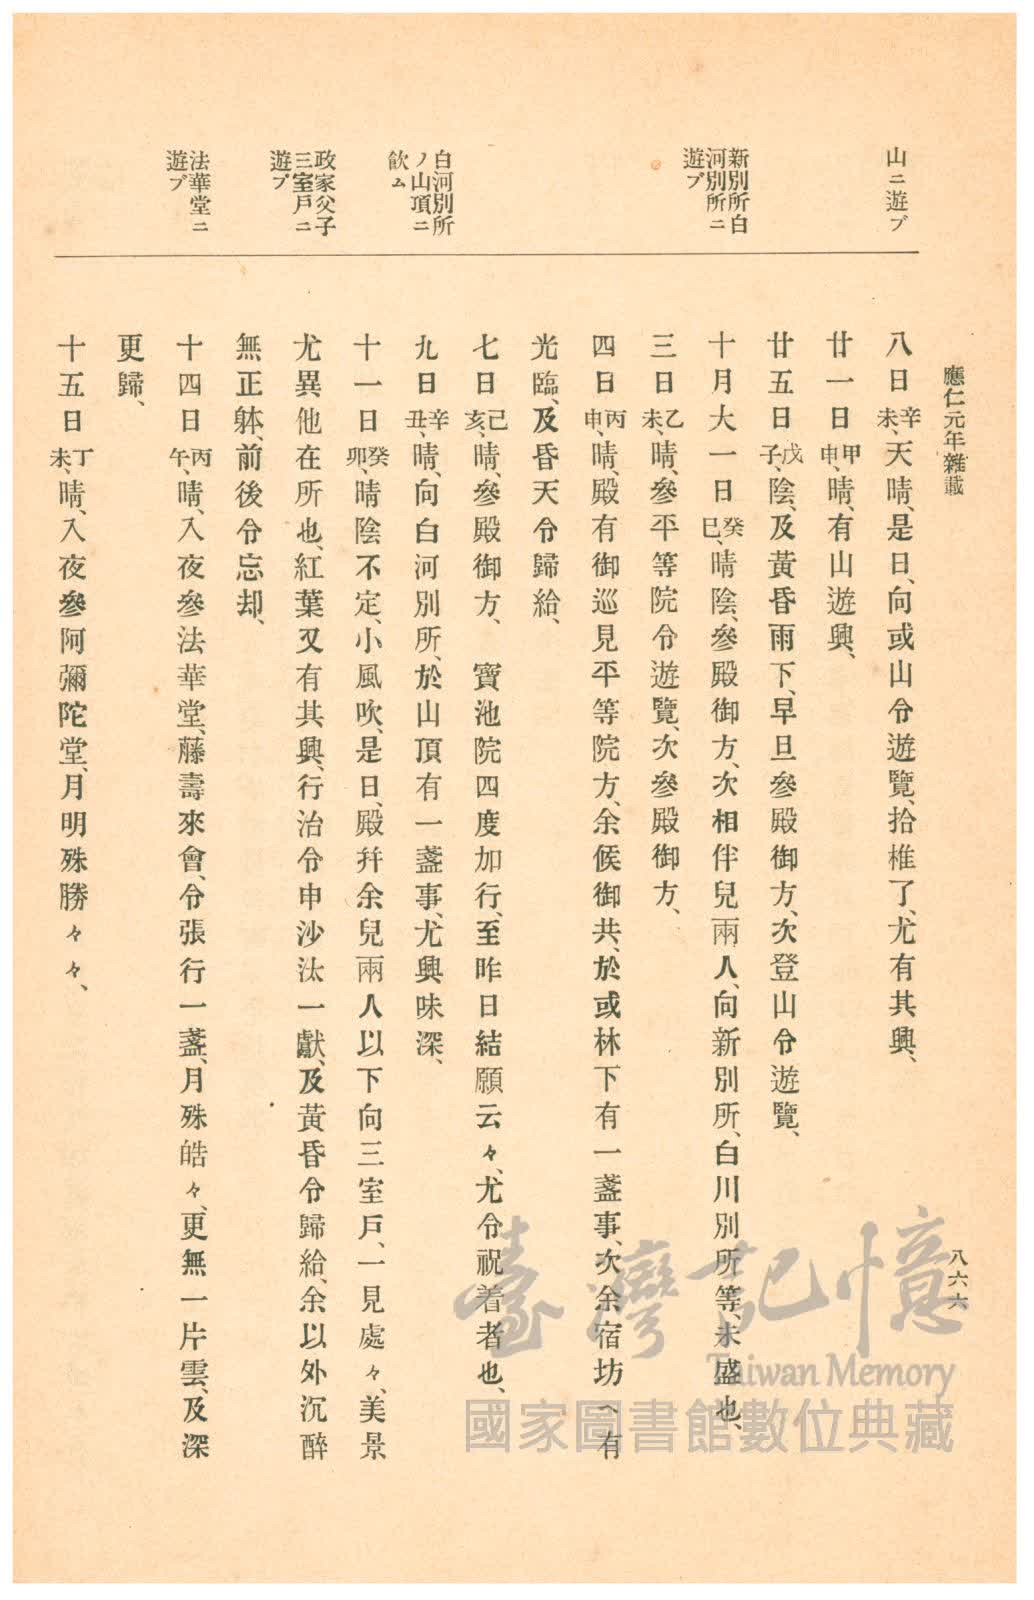 應仁元年雜載
八六六
山ニ遊ブ
新別所白
河別所ニ
遊ブ
白河別所
ノ山頂ニ
飲ム
政家父子
三室戶ニ
遊ブ
法華堂ニ
遊ブ
八日辛未、天晴、是日、向或山令遊覽、拾椎了、尤有其興、
廿一日甲申、晴、有山遊興、
廿五日戊子、陰、及黃昏雨下、早旦參殿御方、次登山令遊覽、
十月大一日癸巳、晴陰、參殿御方、次相伴兒兩人、向新別所、白川別所等、未盛也、
三日乙未、晴、參平等院令遊覽、次參殿御方、
四日丙申、晴、殿有御巡見平等院方、余候御共、於或林下有一盞事、次余宿坊へ有
光臨、及昏天令歸給、
七日己亥、晴、參殿御方、　寶池院四度加行、至昨日結願云々、尤令祝着者也、
九日辛丑、晴、向白河別所、於山頂有一盞事、尤興味深、
十一日癸卯、晴陰不定、小風吹、是日、殿幷余兒兩人以下向三室戶、一見處々、美景
尤異他在所也、紅葉又有其興、行治令申沙汰一獻、及黃昏令歸給、余以外沉醉
無正躰、前後令忘却、
十四日丙午、晴、入夜參法華堂、藤壽來會、令張行一盞、月殊皓々、更無一片雲、及深
更歸、
十五日丁未、晴、入夜參阿彌陀堂、月明殊勝々々、
臺灣記憶
Taiwan Memory
國家圖書館數位典藏